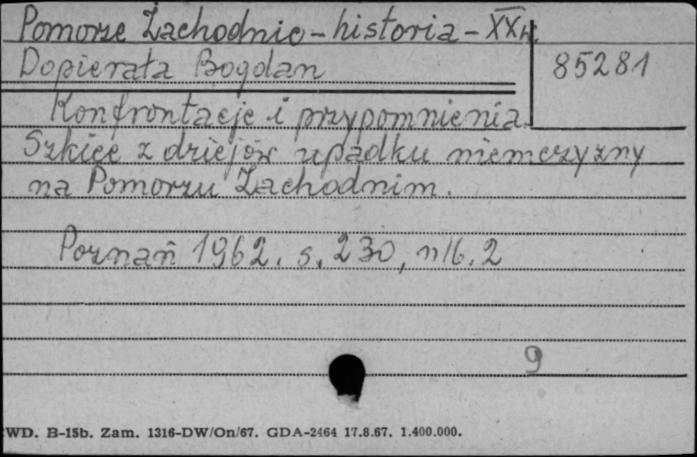 Pomorze Zachodnie - historia - XX w.
Dopierała Bogdan
85281
Konfrontacje i przypomnienia.
Szkice z dziejów upadku niemczyzny
na Pomorzu Zachodnim.
Poznań 1962. s. 230, nlb. 2
9
WD. B-15b. Zam. 1316-DW/On/67. GDA-2464 17.8.67. 1.400.000.